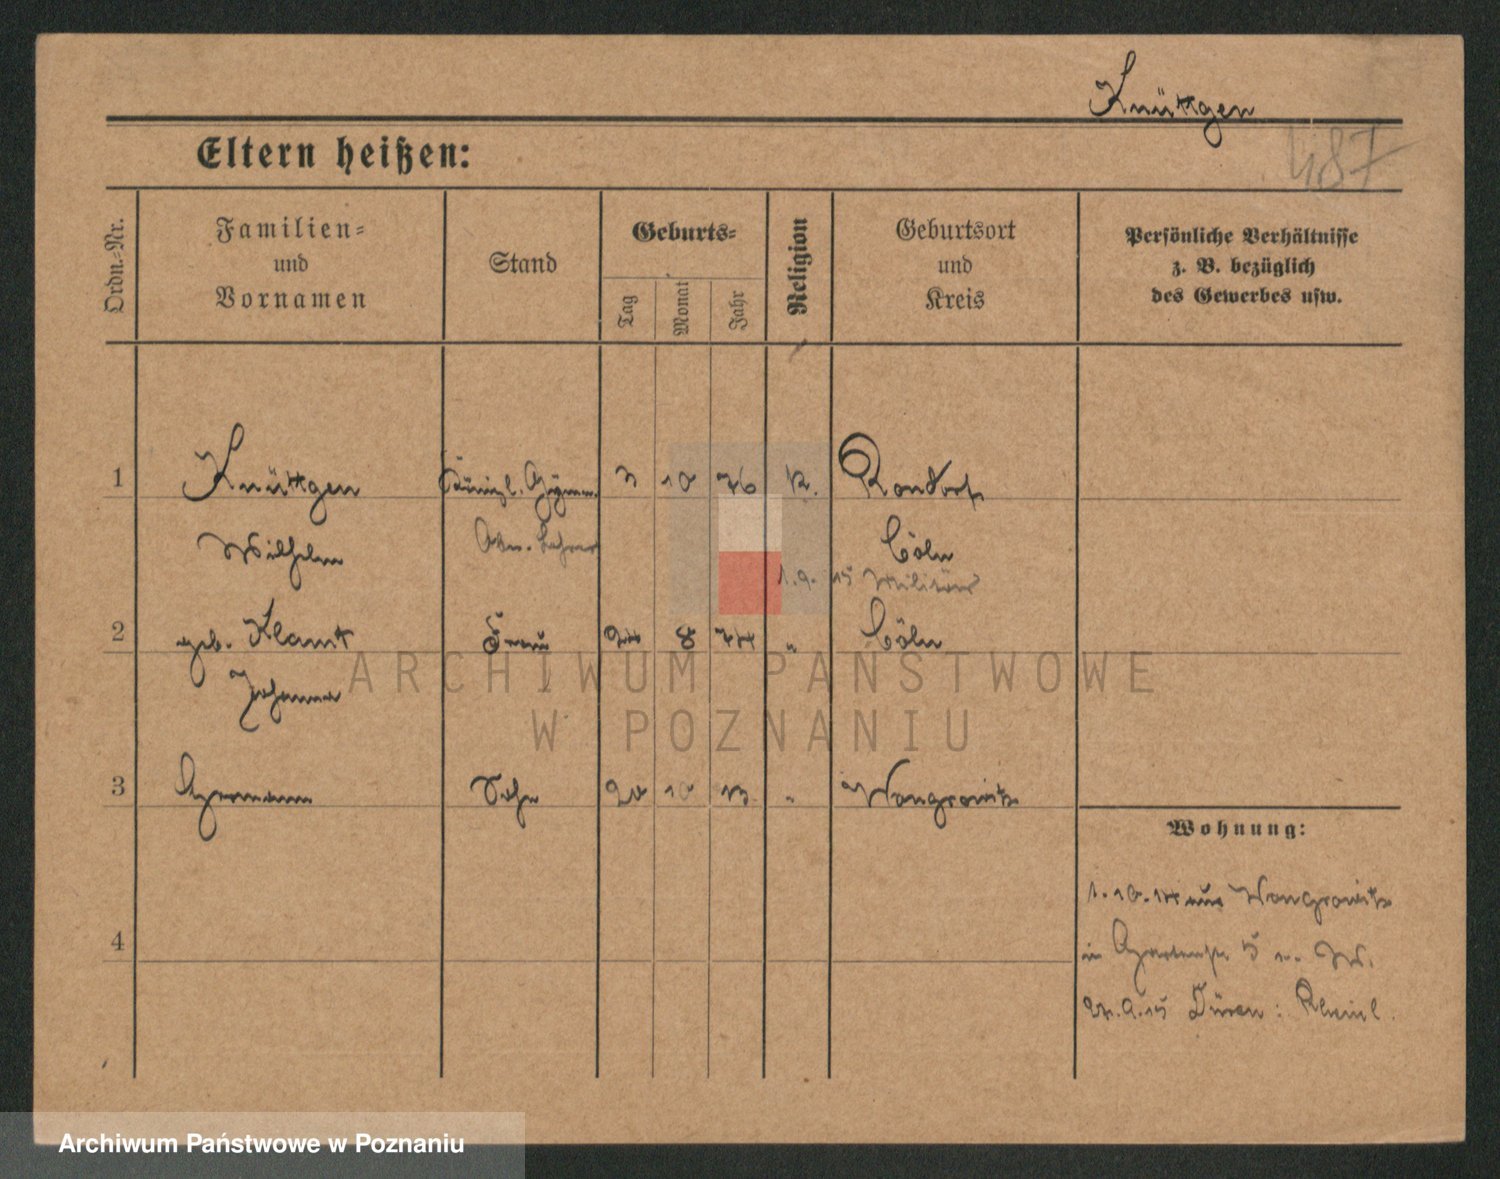 Knüttgen
487
Eltern heißen:
Ordn.-Nr.
Familien-
und
Vornamen
Stand
Geburts-
Tag
Monat
Jahr
Religion
Geburtsort
und
Kreis
Persönliche Verhältnisse
z. B. bezüglich
des Gewerbes usw.
1 Knüttgen Königl. Gymn. 3 10 76 K. Rondorf
Wilhelm Ob. Lehrer Cöln
1.9.15 Militär
2 geb. Klamt Frau 8 74 " Cöln
Johanna
3 Hermann Sohn 20 10 13 " Wongrowitz
Wohnung:
1.10.14 aus Wongrowitz
4
in Gartenstr. 5 b. W.
9.15 Düren: Rheinl.
ARCHIWUM PAŃSTWOWE
W POZNANIU
Archiwum Państwowe w Poznaniu